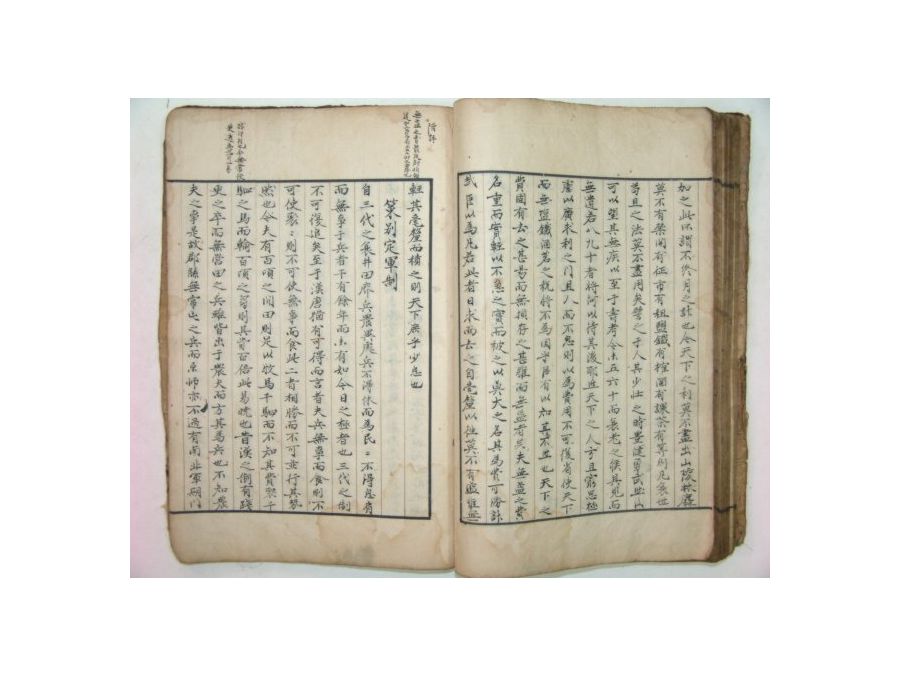 如之此所謂不終月之計也今天下之利莫不盡出山陵林麓
莫不有禁關有征市有租鹽鐵有榷酒有課茶有算則凡衰世
苟且之法莫不盡用矣譬之于人其少壯之時豐健勇武然
可以望其無疾以至于壽考今未五六十而衰老之候具見而
無遺若八九十者將何以待其後耶然天下之人方且窮思極
慮以廣求利之門且人而不思則以為費用不可復省使天下
而無鹽鐵酒茗之稅將不為國乎臣有以知其不然也天下之
費固有去之甚易而無損存之甚難而無益者矣夫無益之費
名重而實輕以不急之實而被之以莫大之名其為費可勝計
哉臣以為凡若此者日求而去之自毫釐以往莫不有益惟無
輕其毫釐而積之則天下庶乎少息也
策別定軍制
自三代之衰井田廢兵農異處兵不得休而為民民不得息肩
而無事于兵者千有餘年而未有如今日之極者也三代之制
不可復追矣至于漢唐猶有可得而言者夫兵無事而食則不
可使聚聚則不可使無事而食此二者相勝而不可並行其勢
然也今夫有百頃之閒田則足以牧馬千駟而不知其費聚千
駟之馬而輸百頃之芻則其費百倍此易曉也昔漢之制有踐
更之卒而無營田之兵雖皆出于農夫而方其為兵也不知農
夫之事是故郡縣無常屯之兵而京師亦不過有南北軍期門